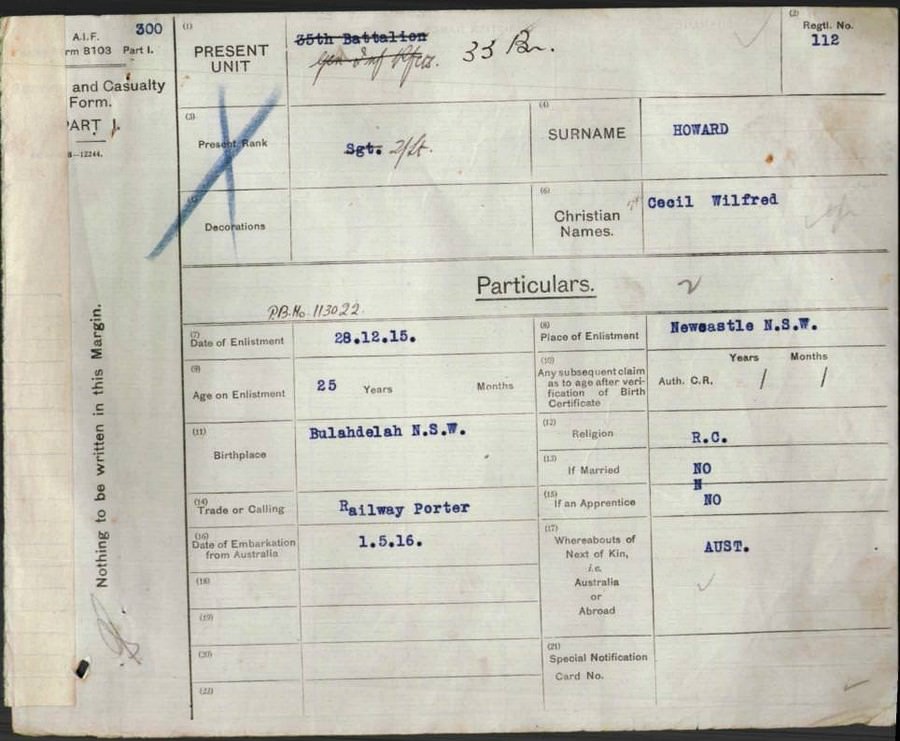 A.I.F. 300
rm B103 Part I.
and Casualty
Form.
PART I.
8—12244.
Nothing to be written in this Margin.
(1)
PRESENT
UNIT
35th Battalion
Gen Inf Rfcs. 33 Bn.
(2)
Regtl. No.
112
(3)
Present Rank
Sgt. 2/Lt.
(4)
SURNAME
HOWARD
Decorations
(6)
Christian
Names.
Cecil Wilfred
Particulars.
P.B. No. 113022
(7)
Date of Enlistment
28.12.15.
(8)
Place of Enlistment
Newcastle N.S.W.
(9)
Age on Enlistment
25 Years Months
(10)
Any subsequent claim
as to age after veri-
fication of Birth
Certificate
Years Months
Auth. C.R. / /
(11)
Birthplace
Bulahdelah N.S.W.
(12)
Religion
R.C.
(13)
If Married
NO
(14)
Trade or Calling
Railway Porter
(15)
If an Apprentice
N
NO
(16)
Date of Embarkation
from Australia
1.5.16.
(17)
Whereabouts of
Next of Kin,
i.e.
Australia
or
Abroad
AUST.
(18)
(19)
(20)
(21)
Special Notification
Card No.
(22)